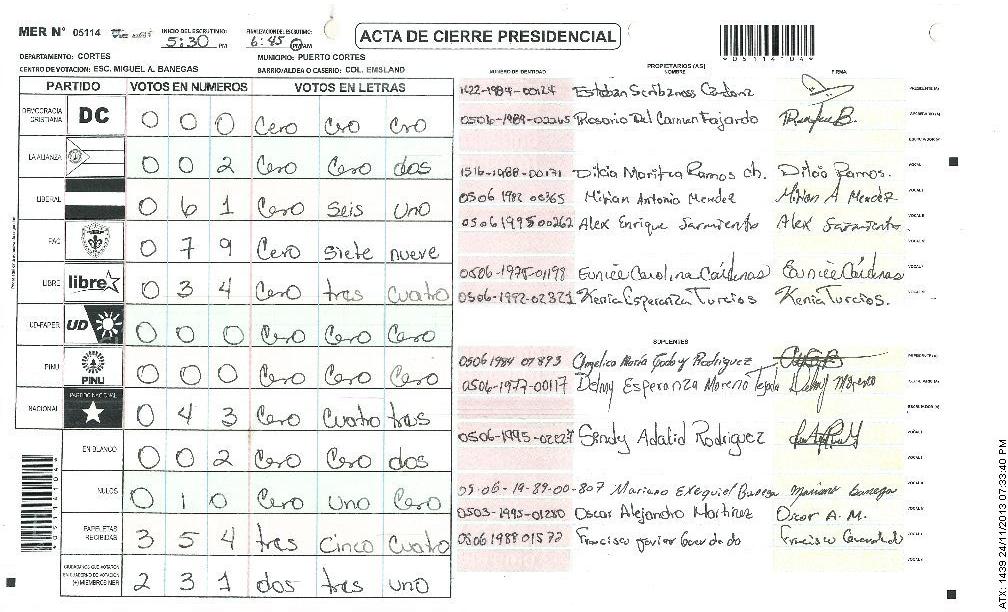 MER N° 05114 INICIO DEL ESCRUTINIO: 5:30 PM FINALIZACION DEL ESCRUTINIO: 6:45 PM AM
ACTA DE CIERRE PRESIDENCIAL
*05114104*
DEPARTAMENTO: CORTES MUNICIPIO: PUERTO CORTES
CENTRO DE VOTACION: ESC. MIGUEL A. BANEGAS BARRIO/ALDEA O CASERIO: COL. EMSLAND
PARTIDO VOTOS EN NUMEROS VOTOS EN LETRAS
DEMOCRACIA CRISTIANA DC 0 0 0 Cero Cro Cro
LA ALIANZA 0 0 2 Cero Cero dos
LIBERAL 0 6 1 Cero Seis Uno
PAC 0 7 9 Cero Siete nueve
LIBRE libre 0 3 4 Cero tres Cuatro
UD-FAPER UD 0 0 0 Cero Cero Cero
PINU PINU 0 0 0 Cero Cero Cero
NACIONAL PARTIDO NACIONAL 0 4 3 Cero Cuatro tras
EN BLANCO 0 0 2 Cero Cero dos
NULOS 0 1 0 Cero Uno Cero
PAPELETAS RECIBIDAS 3 5 4 tres Cinco Cuatro
CIUDADANOS QUE VOTARON EN CUADERNO DE VOTACION (+) MIEMBROS MER 2 3 1 dos tres uno
PROPIETARIOS (AS)
NUMERO DE IDENTIDAD NOMBRE FIRMA
1622-1984-00124 Esteban Cardona PRESIDENTE (A)
0506-1989-02265 Rosario Del Carmen Fajardo SECRETARIO (A)
ESCRUTADOR (A)
1516-1988-00171 Dilcia Maritza Ramos ch. Dilcia Ramos. VOCAL I
0506 1982 00365 Mirian Antonio Mendez Mirian A Mendez VOCAL II
0506 1995 00262 Alex Enrique Sarmiento Alex Sarmiento VOCAL III
VOCAL IV
0506-1975-01198 Eunice Carolina Cárdenas Eunice Cárdenas VOCAL V
0506-1992-02321 Kenia Esperanza Turcios Kenia Turcios. VOCAL VI
SUPLENTES
0506 1984 07893 Angelica María Godoy Rodriguez PRESIDENTE (A)
0506-1977-00117 Delmy Esperanza Moreno Tejada Delmy Moreno SECRETARIO (A)
ESCRUTADOR (A)
0506-1995-02227 Sendy Adalid Rodriguez VOCAL I
VOCAL II
0506-19-89-00-807 Mariano Exequiel Banega Mariano banega VOCAL III
0503-1995-01280 Oscar Alejandro Martinez Oscar A. M. VOCAL IV
0506 1988 01572 Francisco Javier Francisco VOCAL V
VOCAL VI
*05114104*
ATX: 1439 24/11/2013 07:33:40 PM